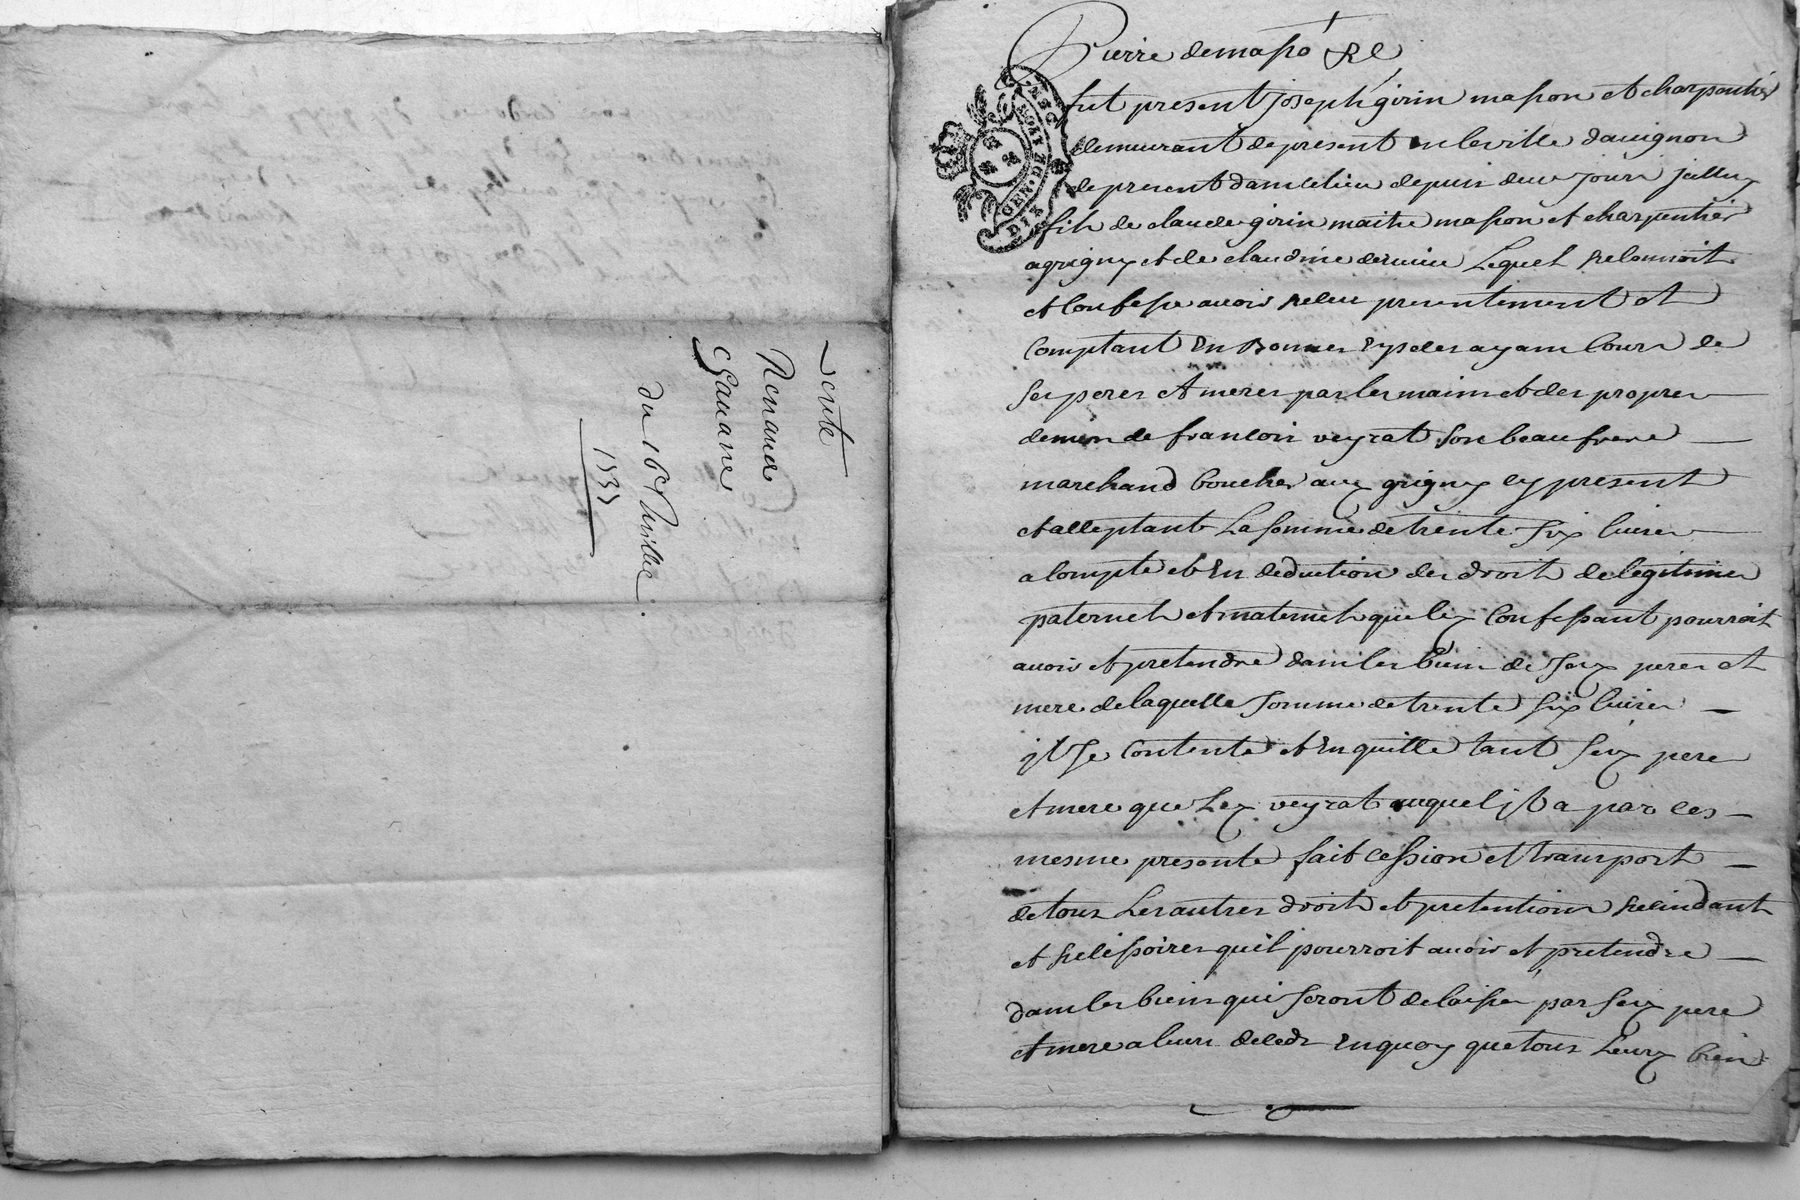 vente
Renaud
Gavane
du 16e Avrillie
1737
Pierre demasso
fut present joseph girin masson et charpentier
demeurant de present en la ville dauignon
de present dans ce lieu depuis deux jours
fils de claude girin maitre masson et charpentier
a grigny et de claudine dervieu Lequel reconnoit
et Confesse auoir receu presentement et
Comptant En Bonnes Espèces ayant Cours de
ses peres et meres par les mains et des propres
deniers de francois veyrat son beau frere
marchand boucher aux grigny cy present
et acceptant La somme de trente six liures
a Compte et En deduction des droits de legitimes
paternels et maternels que ley Confessant pourroit
auoir et pretendre dans les biens de sesx peres et
mere de laquelle somme de trente six liures
jl se Contente et En quitte tant sesx pere
et mere que Ley veyrat auquel jl a par ces
mesme presente fait cession et transport
de tous Les autres droits et pretentions rescindant
et rescissoires quil pourroit auoir et pretendre
dans les biens qui seront delaissés par sesx pere
et mere a leurs deceds En quoy que tous Leurx biens